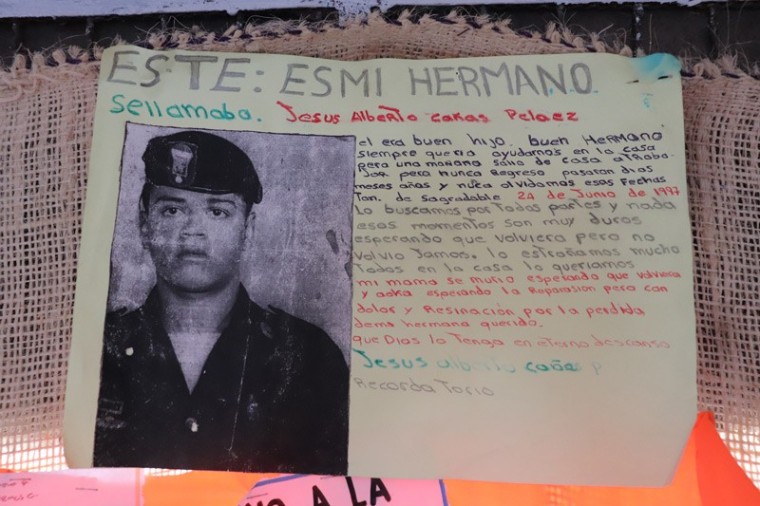 ESTE: ES MI HERMANO.
Sellamaba. Jesus Alberto cañas Pelaez
el era buen hijo. buen HERMANO
siempre queria ayudarnos en la casa
pero una mañana salio de casa a trabа.
Jar pero nunca Regreso pasaron dias
meses años y nuca olvidamos esas Fechas
Tan. de sagradable 24 de Junio de 1997
Lo buscamos por todas partes y nada
esos momentos son muy duros
esperando que volviera pero no
volvio Jamos. lo estrañamos mucho
Todos en la casa lo queriamos
mi mama se murio esperado que volviera
y aora esperando la Reparasion pero con
dolor y Resinación por la perdida
demi hermano querido.
que Dios lo Tenga en eterno descanso
Jesus alberto cañas p
Recorda Torio
NO A LA